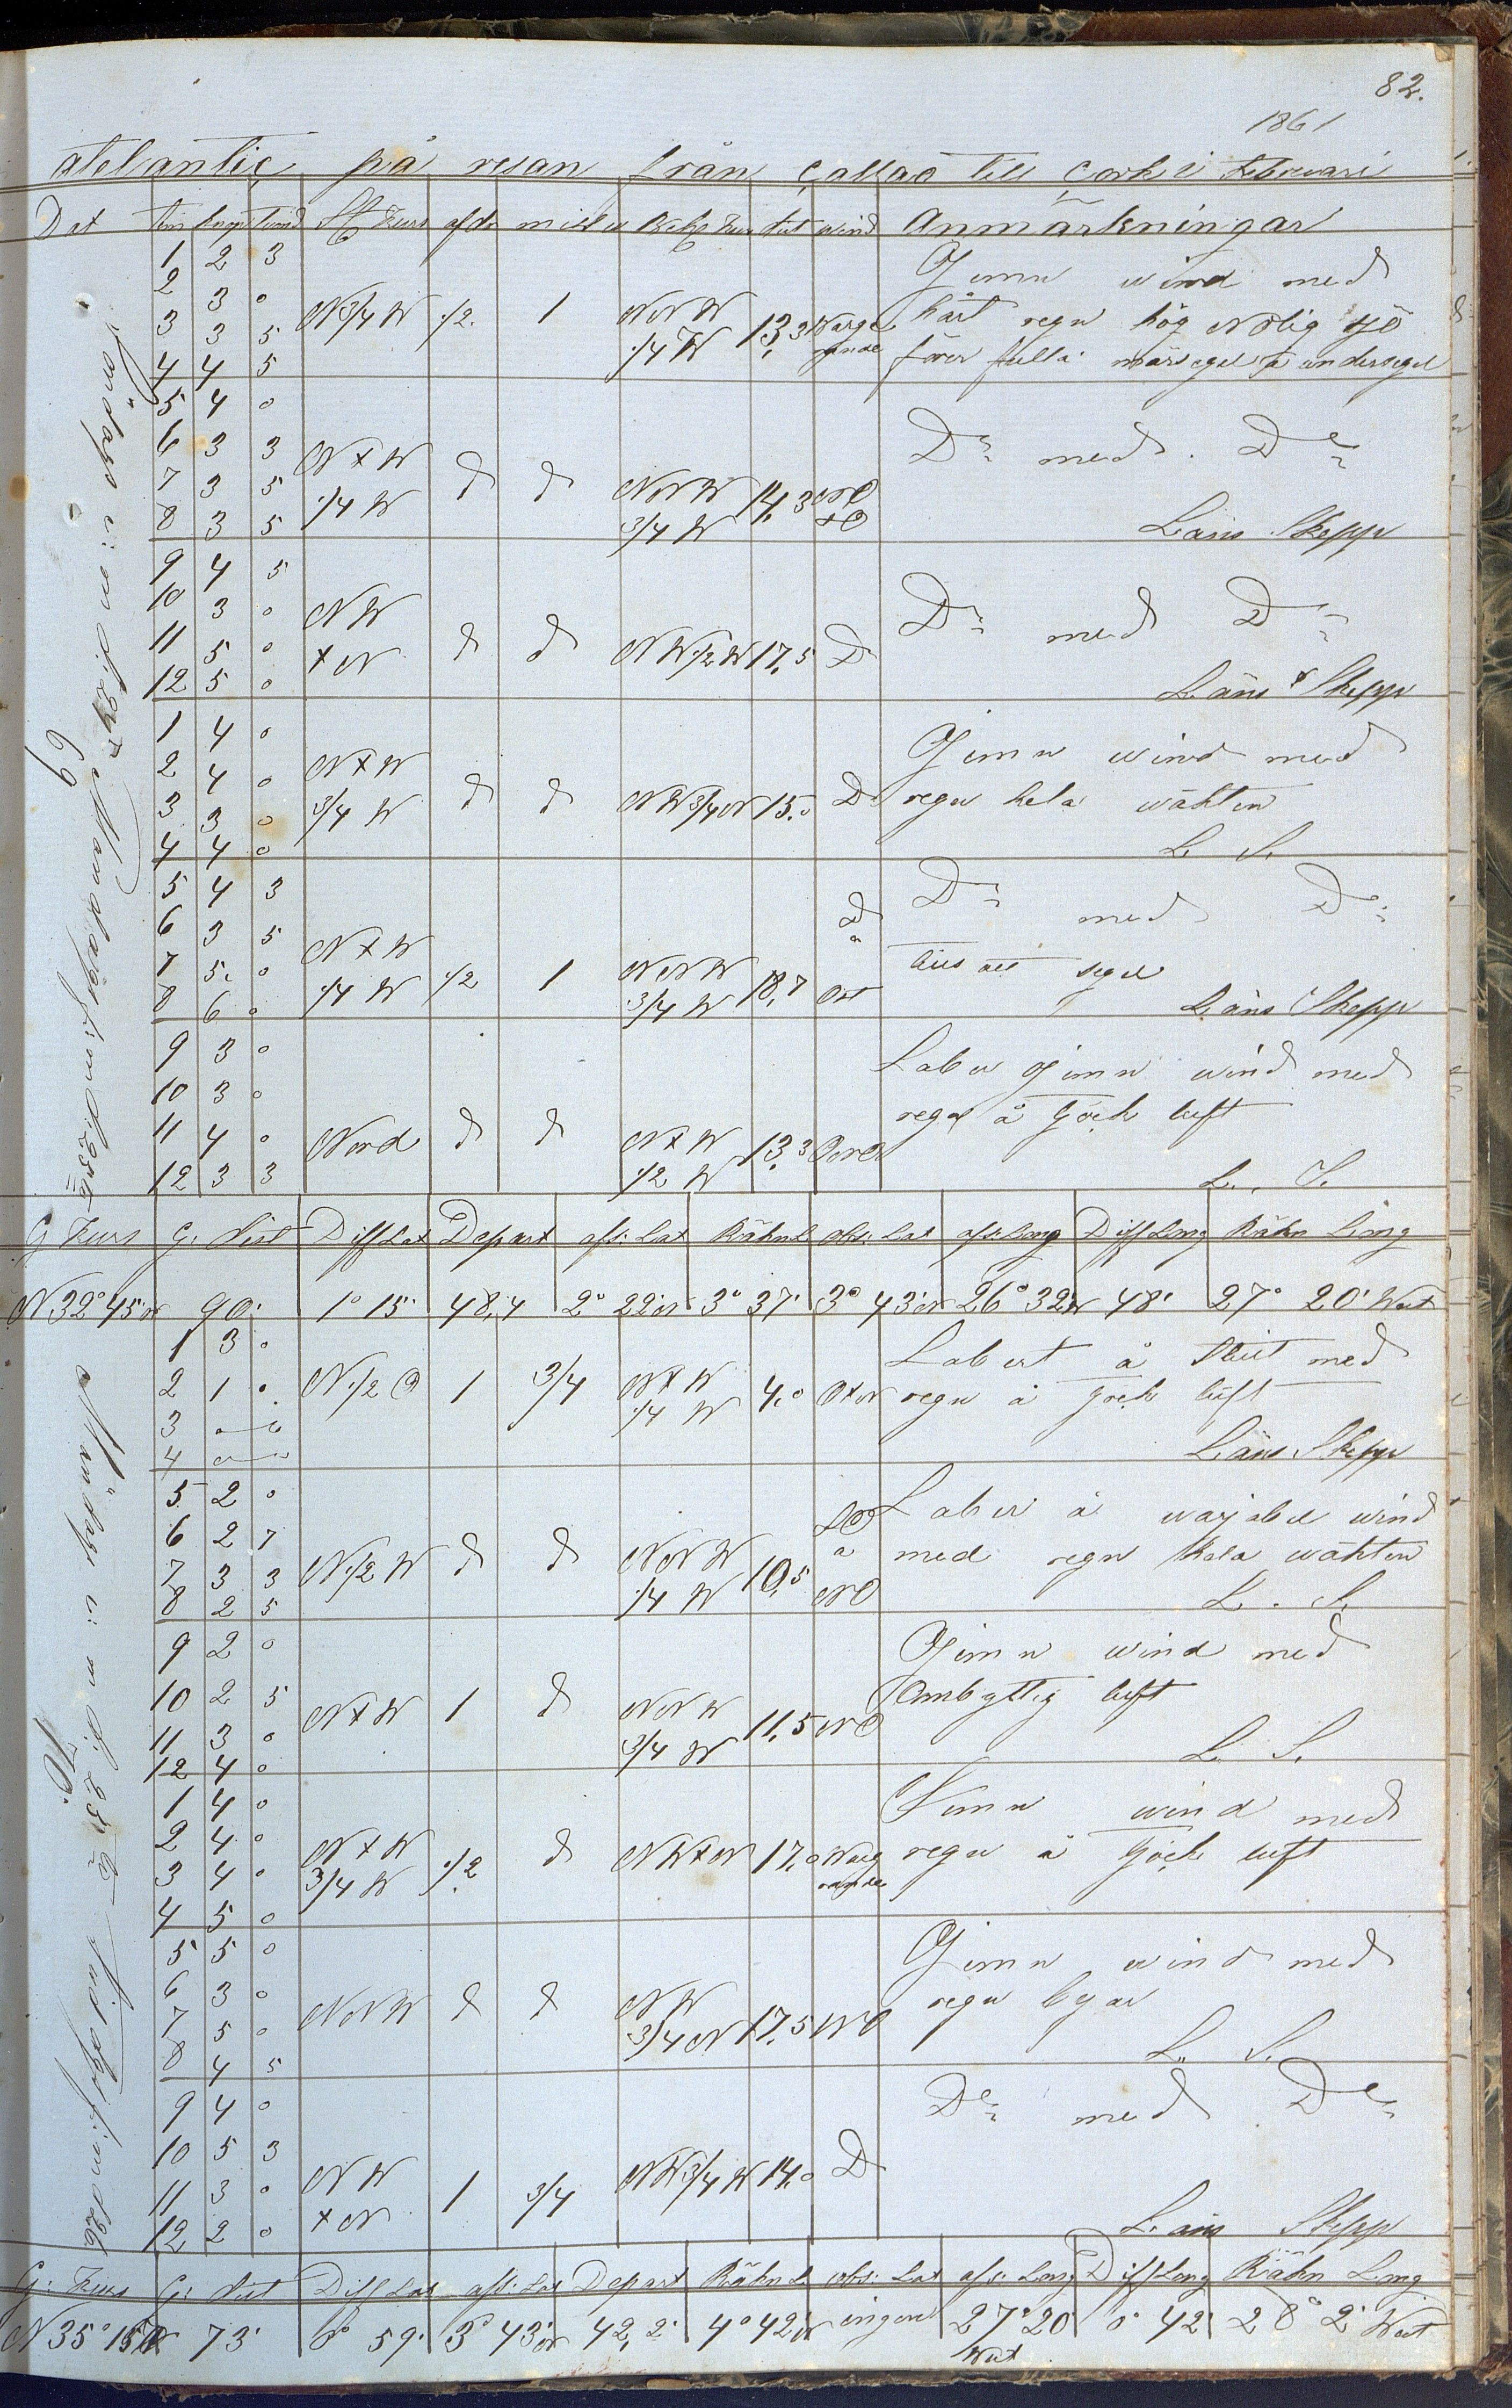 82.
1861
atelantic på resan från Callao till Cork i Februari
Dat Tim knop Kurs afdr Kurs dist wind Anmärkningar
1 2 3 Jemn wind med
2 3 0 N 3/4 W 1/2 1 NNW 13,3 hårt regn hög Nolig sjö
3 3 5 1/4 W förer fulla märsegel å undersegel
4 4 5
5 4 0
6 3 3 N x W Do med Do
7 3 5 1/4 W d d NNW 14,3
8 3 5 3/4 W Läns Skepp
9 4 5
10 3 0 NW Do med Do
11 5 0 x N d d NW 1/2 W 17,5 D
12 5 0 Läns Skepp
1 4 0 Jemn wind med
2 4 0 N x W
3 3 0 3/4 W d d NW 3/4 N 15,0 D regn hela wähten
4 4 0 L. S.
5 4 3 Do med Do
6 3 5 N x W
7 5 0 1/4 W 1/2 1 NNW 18,7 Ost segel
8 6 0 3/4 W Läns Skepp
9 3 0 Laber Jemn wind med
10 3 0 regn å tjock luft
11 4 0 Nord d d N x W 13,3
12 3 3 1/2 W L. S.
G Kurs G: Dist Diff Lat Depart afs: Lat Räkn L obs: Lat afs: Long Diff Long Räkn Long
N 32° 45' W 90' 1° 15' 48,4 2° 22' N 3° 37' 3° 43' N 26° 32' W 48' 27° 20' West
1 3 0 Labert å med
2 1 0 N 1/2 O 1 3/4 N x W 4,0 O x N regn å tjock luft
3 1/4 W
4 Läns Skepp
5 2 0 Laber å warjabel wind
6 2 7 SO
7 3 3 N 1/2 W d d NNW 10,5 a med regn hela wähten
8 2 5 1/4 W NO L. S.
9 2 0 Jemn wind med
10 2 5 N x W 1 d NNW 11,5 NO Ombyttlig luft
11 3 0 3/4 W
12 4 0 L. S.
1 4 0 Jemn wind med
2 4 0 N x W
3 4 0 3/4 W 1/2 d NW x N 17,0 regn å tjock luft
4 5 0
5 5 0 Jemn wind med
6 3 0 NNW d d NW regn byar
7 5 0 3/4 N 17,5 NO
8 4 5 L. S.
9 4 0 Do med Do
10 5 3
11 3 0 NW 1 3/4 NW 3/4 W 14,0 D
12 2 0 x N Läns Skepp
G: Kurs G: Dist Diff Lat afs: Lat Depart Räkn L obs: Lat afs: Long Diff Long Räkn Long
N 35° 15' W 73' 0° 59' 3° 43' N 42,2' 4° 42' N ingen 27° 20' 0° 42' 28° 2' West
West
Söndags e: m d: 24de Mondags f: m d: 25te
69
Mondags e: m d: 25te Tisdags f: m d 26
70